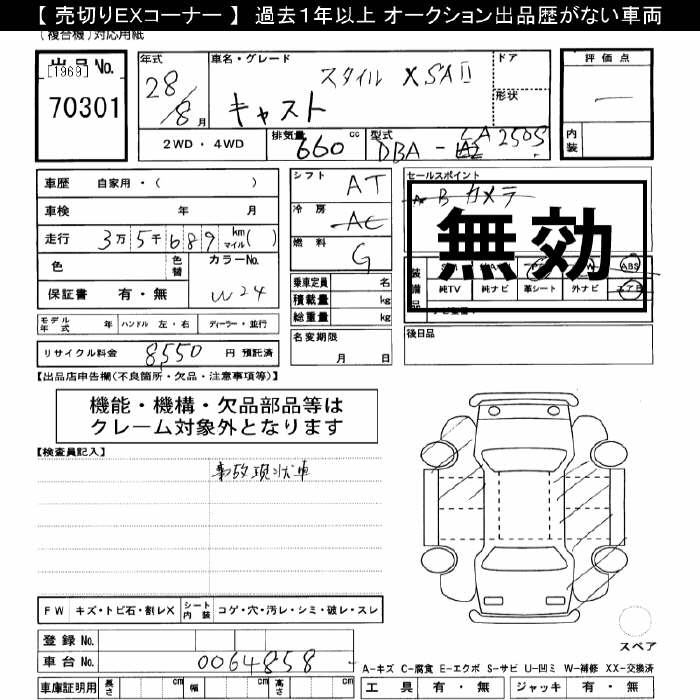 【 売切りEXコーナー 】 過去１年以上 オークション出品歴がない車両
(複合機)対応用紙
出品 No. [1969]
70301
年式 28/8月
車名・グレード スタイル XSAⅡ
キャスト
ドア
形状
評価点 —
内装
2WD・4WD
排気量 660 cc
型式 DBA - LA250S
車歴 自家用・( )
車検 年 月
走行 3万5千689 km マイル( )
色 色替 カラーNo. W24
保証書 有・無
モデル年式 年 ハンドル 左・右 ディーラー・並行
リサイクル料金 8550 円 預託済
シフト AT
冷房 AC
燃料 G
乗車定員 名
積載量 kg
総重量 kg
名変期限 月 日
セールスポイント
B カメラ
無効
装備品
ABS
純TV 純ナビ 革シート 外ナビ エアB
後日品
【出品店申告欄(不良箇所・欠品・注意事項等)】
機能・機構・欠品部品等は
クレーム対象外となります
【検査員記入】
事故現状車
FW キズ・トビ石・割レX シート内装 コゲ・穴・汚レ・シミ・破レ・スレ
登録 No.
車台 No. 0064858
車庫証明用 長さ cm 幅 cm 高さ cm
スペア
A-キズ C-腐食 E-エクボ S-サビ U-凹ミ W-補修 XX-交換済
工具 有・無 ジャッキ 有・無